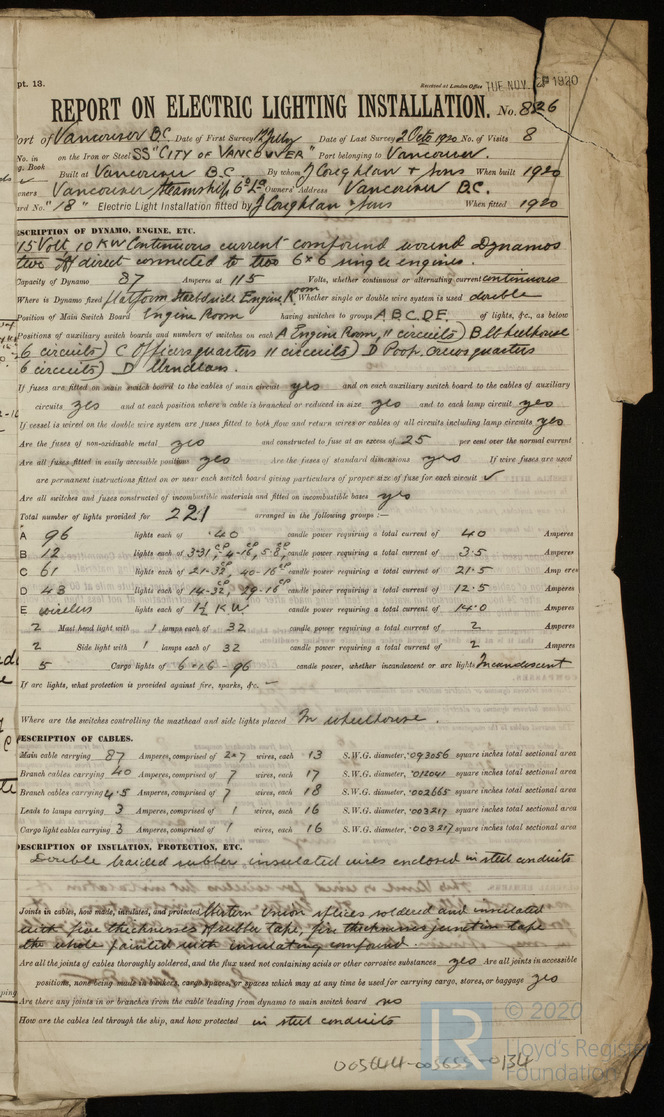 pt. 13.
Received at London Office TUE. NOV. 2 1920
REPORT ON ELECTRIC LIGHTING INSTALLATION. No. 8826
ort of Vancouver B.C. Date of First Survey 12 July Date of Last Survey 2 Octo 1920 No. of Visits 8
No. in on the Iron or Steel SS "CITY OF VANCOUVER" Port belonging to Vancouver.
g. Book Built at Vancouver B.C. By whom J Coughlan & Sons When built 1920
wners Vancouver Steamship Co Ld Owners' Address Vancouver B.C.
rd No. "18" Electric Light Installation fitted by J Coughlan & Sons When fitted 1920
ESCRIPTION OF DYNAMO, ENGINE, ETC.
15 Volt, 10 KW Continuous current compound wound Dynamos
two off direct connected to two 6x6 single engines.
Capacity of Dynamo 87 Amperes at 115 Volts, whether continuous or alternating current continuous
Where is Dynamo fixed Platform Starbdside Engine Room Whether single or double wire system is used double
Position of Main Switch Board Engine Room having switches to groups A B C D E. of lights, &c., as below
Positions of auxiliary switch boards and numbers of switches on each A Engine Room, 11 circuits) B Wheelhouse
6 circuits) C Officers quarters 11 circuits) D Poop, crews quarters
6 circuits) D
If fuses are fitted on main switch board to the cables of main circuit yes and on each auxiliary switch board to the cables of auxiliary
circuits yes and at each position where a cable is branched or reduced in size yes and to each lamp circuit yes
If vessel is wired on the double wire system are fuses fitted to both flow and return wires or cables of all circuits including lamp circuits yes
Are the fuses of non-oxidizable metal yes and constructed to fuse at an excess of 25 per cent over the normal current
Are all fuses fitted in easily accessible positions yes Are the fuses of standard dimensions yes If wire fuses are used
are permanent instructions fitted on or near each switch board giving particulars of proper size of fuse for each circuit ✓
Are all switches and fuses constructed of incombustible materials and fitted on incombustible bases yes
Total number of lights provided for 221 arranged in the following groups :—
A 96 lights each of 40 candle power requiring a total current of 40 Amperes
B 12 lights each of 3-31, 4-16, 5-8, candle power requiring a total current of 3.5 Amperes
C 61 lights each of 21-32, 40-16 cp candle power requiring a total current of 21.5 Amperes
D 43 lights each of 14-32, 29-16 cp candle power requiring a total current of 12.5 Amperes
E wireless lights each of 1½ KW candle power requiring a total current of 14.0 Amperes
2 Mast head light with 1 lamps each of 32 candle power requiring a total current of 2 Amperes
2 Side light with 1 lamps each of 32 candle power requiring a total current of 2 Amperes
5 Cargo lights of 6-16-96 candle power, whether incandescent or arc lights Incandescent
If arc lights, what protection is provided against fire, sparks, &c. —
Where are the switches controlling the masthead and side lights placed In wheelhouse.
DESCRIPTION OF CABLES.
Main cable carrying 87 Amperes, comprised of 2x7 wires, each 13 S.W.G. diameter, .093056 square inches total sectional area
Branch cables carrying 40 Amperes, comprised of 7 wires, each 17 S.W.G. diameter, .012041 square inches total sectional area
Branch cables carrying 4.5 Amperes, comprised of 7 wires, each 18 S.W.G. diameter, .002665 square inches total sectional area
Leads to lamps carrying 3 Amperes, comprised of 1 wires, each 16 S.W.G. diameter, .003217 square inches total sectional area
Cargo light cables carrying 3 Amperes, comprised of 1 wires, each 16 S.W.G. diameter, .003217 square inches total sectional area
DESCRIPTION OF INSULATION, PROTECTION, ETC.
Double braided rubber insulated wires enclosed in steel conduits
Joints in cables, how made, insulated, and protected Western Union splices soldered and insulated
with five thicknesses of rubber tape, five thicknesses junction tape
the whole painted with insulating compound.
Are all the joints of cables thoroughly soldered, and the flux used not containing acids or other corrosive substances yes Are all joints in accessible
positions, none being made in bunkers, cargo spaces, or spaces which may at any time be used for carrying cargo, stores, or baggage yes
Are there any joints in or branches from the cable leading from dynamo to main switch board no
How are the cables led through the ship, and how protected in steel conduits
© 2020
LR Lloyd's Register
Foundation
005644-005655-0134